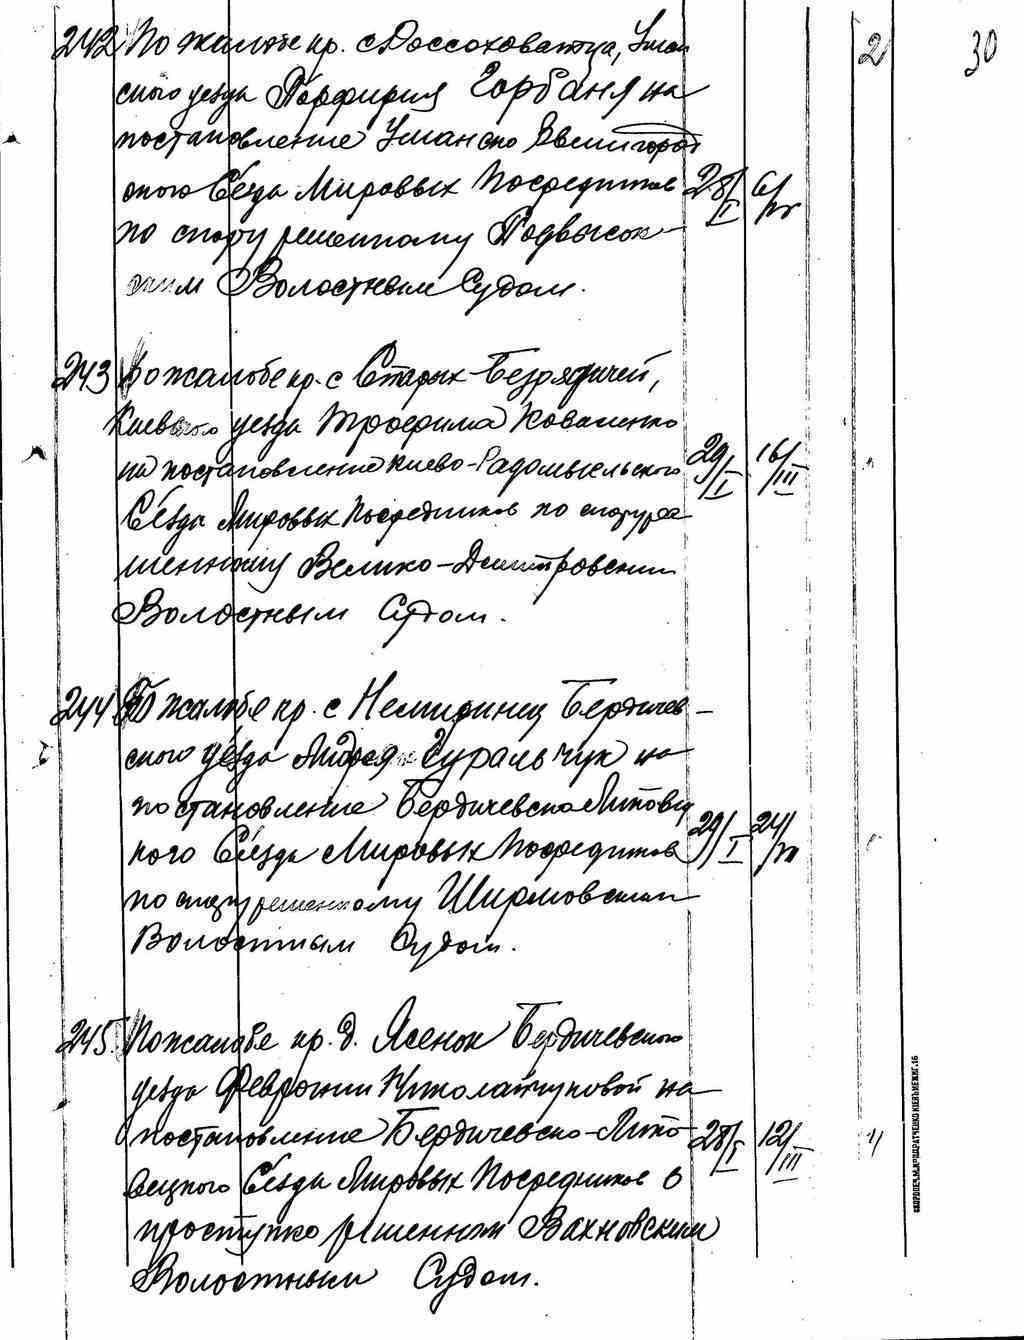 30
2
242 По жалобе кр. с Россоховатца, Уман
ского уезда Порфирия Горбаня на
постановление Уманско Звенигород
ского Съезда Мировых Посредников 28/I 6/IV
по спору решенному Подвысоц-
ким Волостным Судом.
243 По жалобе кр. с Старых-Безрадичей,
Киевского уезда Трофима Коваленко
на постановление Киево-Радомысльского 29/I 16/III
Съезда Мировых Посредников по спору ре
шенному Велико-Дмитровским
Волостным Судом.
244 По жалобе кр. с Немиринец Бердичев-
ского уезда Андрея Чуральчук на
постановление Бердичевско Липовец
кого Съезда Мировых Посредников 29/I 24/IV
по спору решенному Ширмовским
Волостным Судом.
245. По жалобе кр. д. Ясенок Бердичевского
уезда Февронии Николайчуковой на
постановление Бердичевско-Липо- 28/I 12/III
вецкого Съезда Мировых Посредников о
проступке решенном Вахновским
Волостным Судом.